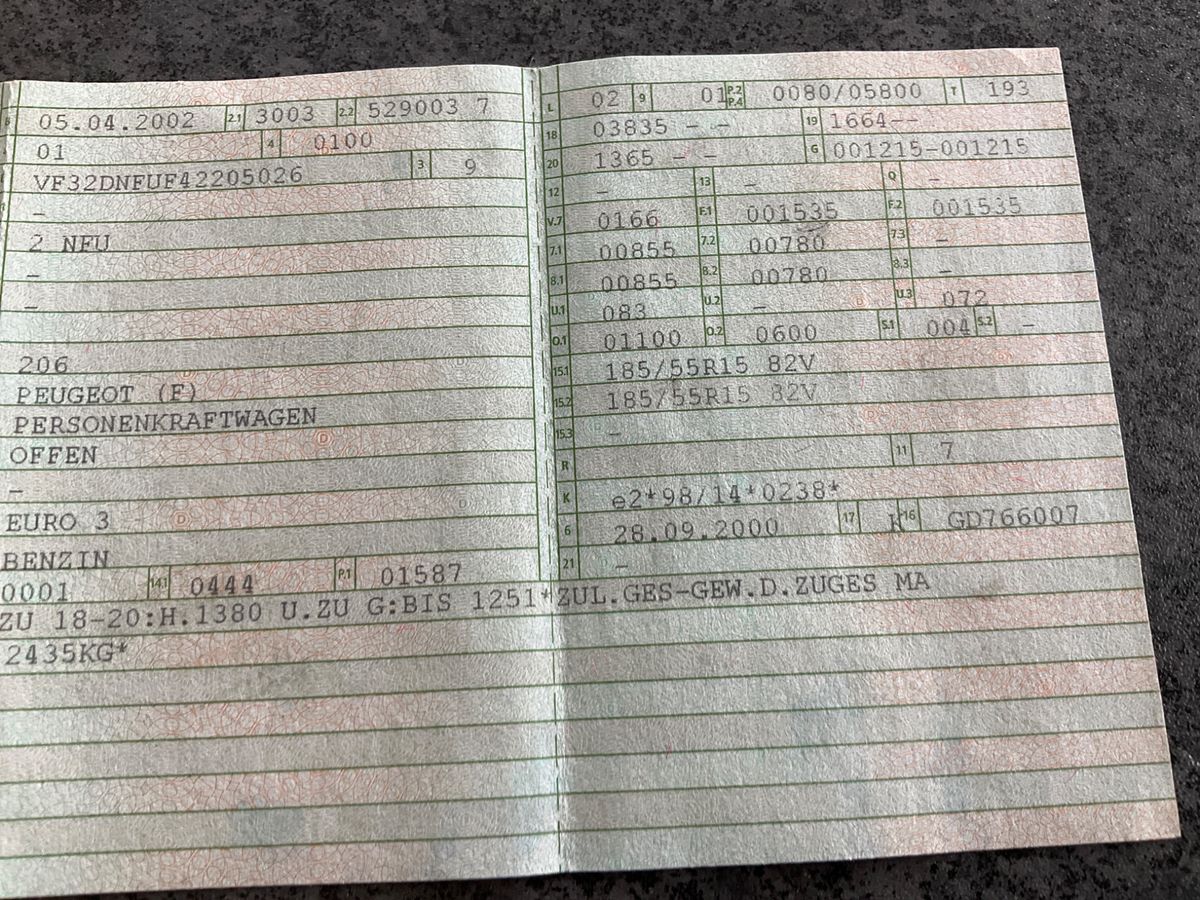 B 05.04.2002 2.1 3003 2.2 529003 7
01 4 0100
VF32DNFUF42205026 3 9
-
2 NFU
-
-
206
PEUGEOT (F)
PERSONENKRAFTWAGEN
OFFEN
-
EURO 3
BENZIN
0001 14.1 0444 P.1 01587
L 02 9 01 P.2 P.4 0080/05800 T 193
18 03835 - - 19 1664--
20 1365 - - G 001215-001215
12 - 13 - Q -
V.7 0166 F.1 001535 F.2 001535
7.1 00855 7.2 00780 7.3 -
8.1 00855 8.2 00780 8.3 -
U.1 083 U.2 - U.3 072
O.1 01100 O.2 0600 S.1 004 S.2 -
15.1 185/55R15 82V
15.2 185/55R15 82V
15.3 -
R 11 7
K e2*98/14*0238*
6 28.09.2000 17 K 16 GD766007
21 -
ZU 18-20:H.1380 U.ZU G:BIS 1251*ZUL.GES-GEW.D.ZUGES MA
2435KG*